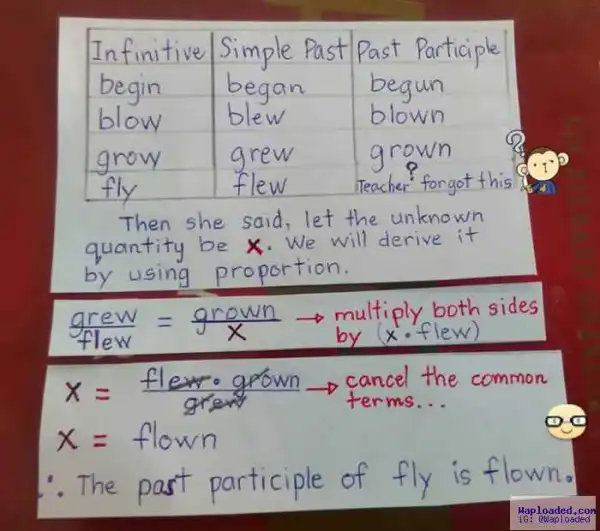 Infinitive Simple Past Past Participle
begin began begun
blow blew blown
grow grew grown
fly flew Teacher? forgot this
Then she said, let the unknown
quantity be x. We will derive it
by using proportion.
grew/flew = grown/x → multiply both sides
by (x • flew)
x = flew • grown/grew → cancel the common
terms...
x = flown
∴ The past participle of fly is flown.
Waploaded.com
IG: @Waploaded